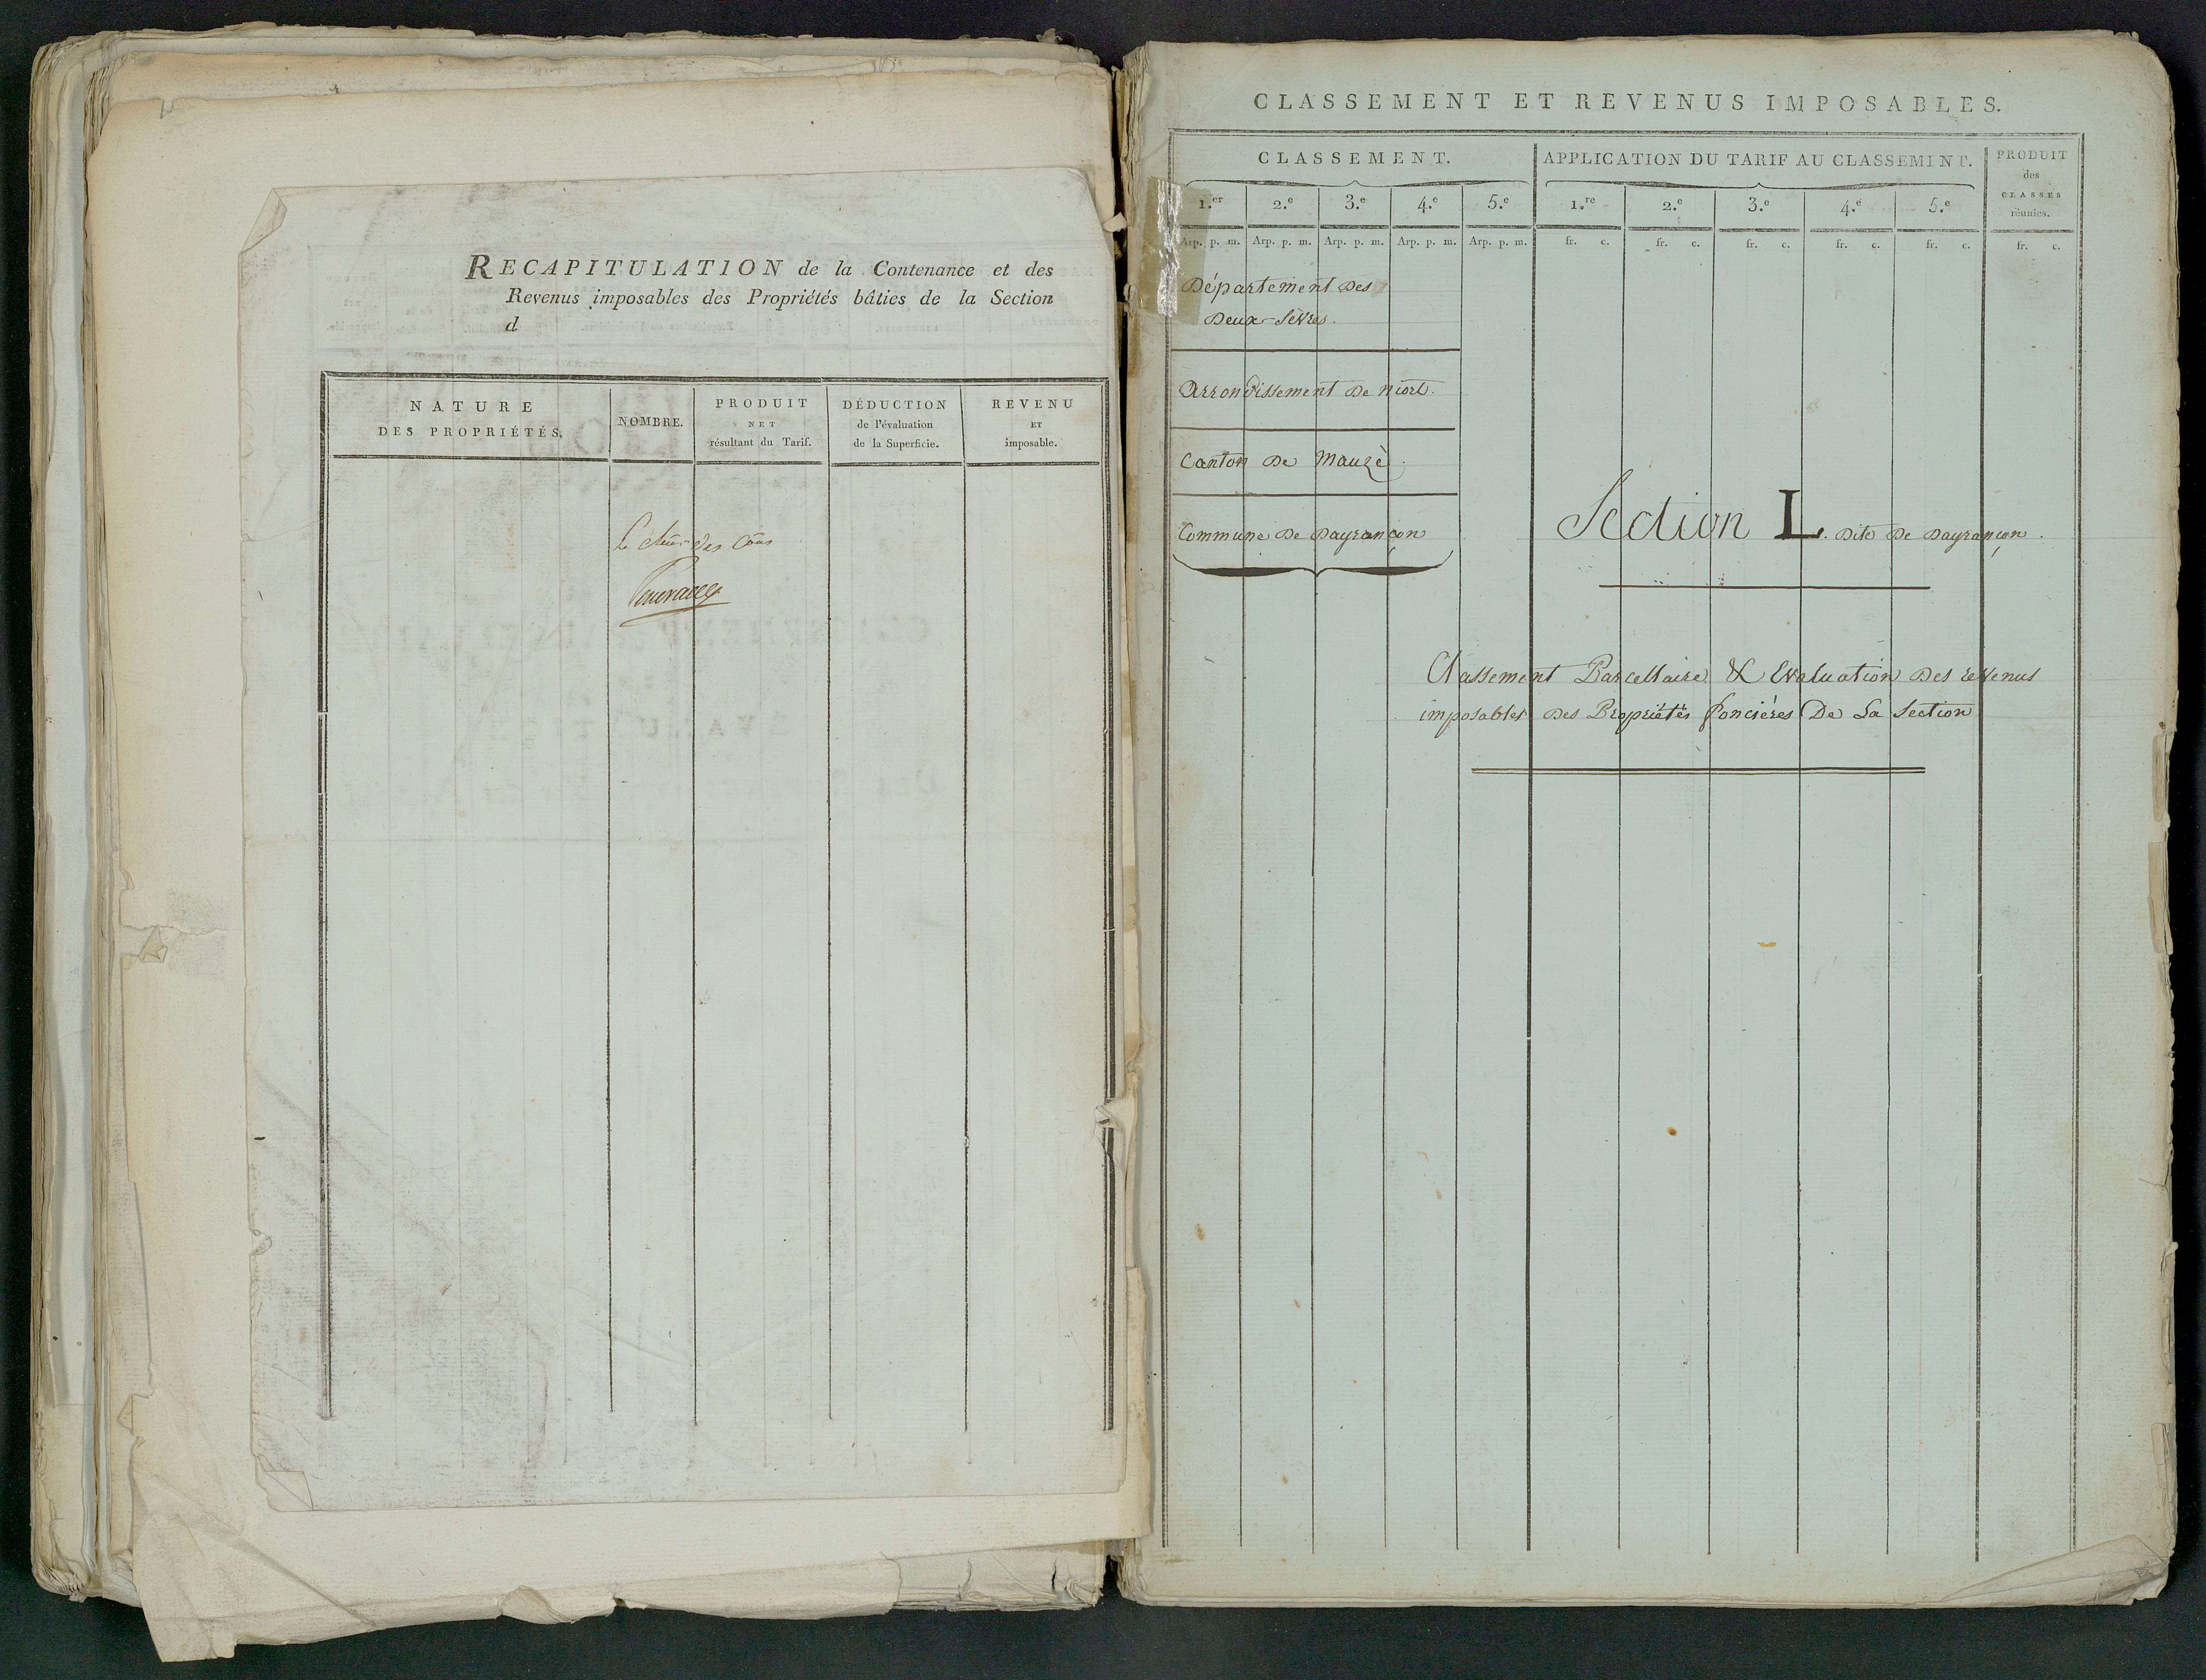 RECAPITULATION de la Contenance et des
Revenus imposables des Propriétés bâties de la Section
d
NATURE
DES PROPRIÉTÉS.
NOMBRE.
PRODUIT
NET
résultant du Tarif.
DÉDUCTION
de l'évaluation
de la Superficie.
REVENU
ET
imposable.
des
CLASSEMENT ET REVENUS IMPOSABLES.
CLASSEMENT.
APPLICATION DU TARIF AU CLASSEMENT.
PRODUIT
des
CLASSES
réunies.
1.er 2.e 3.e 4.e 5.e 1.re 2.e 3.e 4.e 5.e
Arp. p. m. Arp. p. m. Arp. p. m. Arp. p. m. Arp. p. m. fr. c. fr. c. fr. c. fr. c. fr. c. fr. c.
Département Des
Deux-Sèvres.
Arrondissement De Niort.
Canton De Mauzé.
Commune De Dayrançon
Section L. Dite De Dayrançon.
Classement Parcellaire & Evaluation Des revenus
imposables Des Propriétés foncières De La Section